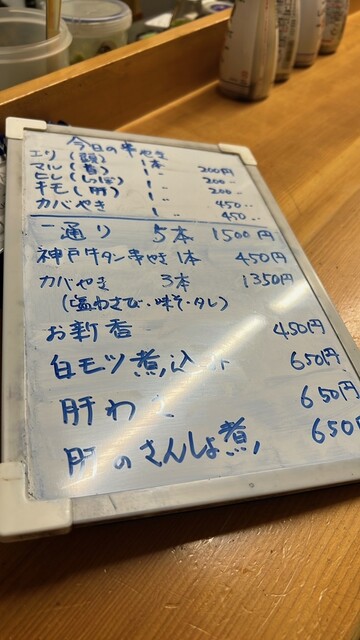 今日の串やき
エリ(頭) 1本 200円
マル(身) 1〃 200〃
ヒレ(しっぽ) 1〃 200〃
キモ(肝) 1〃 450〃
カバやき 1〃 450〃
一通り 5本 1500円
神戸牛タン串やき 1本 450円
カバやき 3本 1350円
(塩わさび・味そ・タレ)
お新香 450円
白モツ煮込み 650円
肝わさ 650円
肝のさんしょ煮 650円